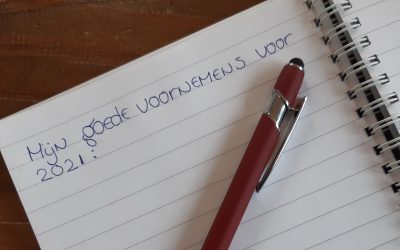 Mijn goede voornemens voor
2021: